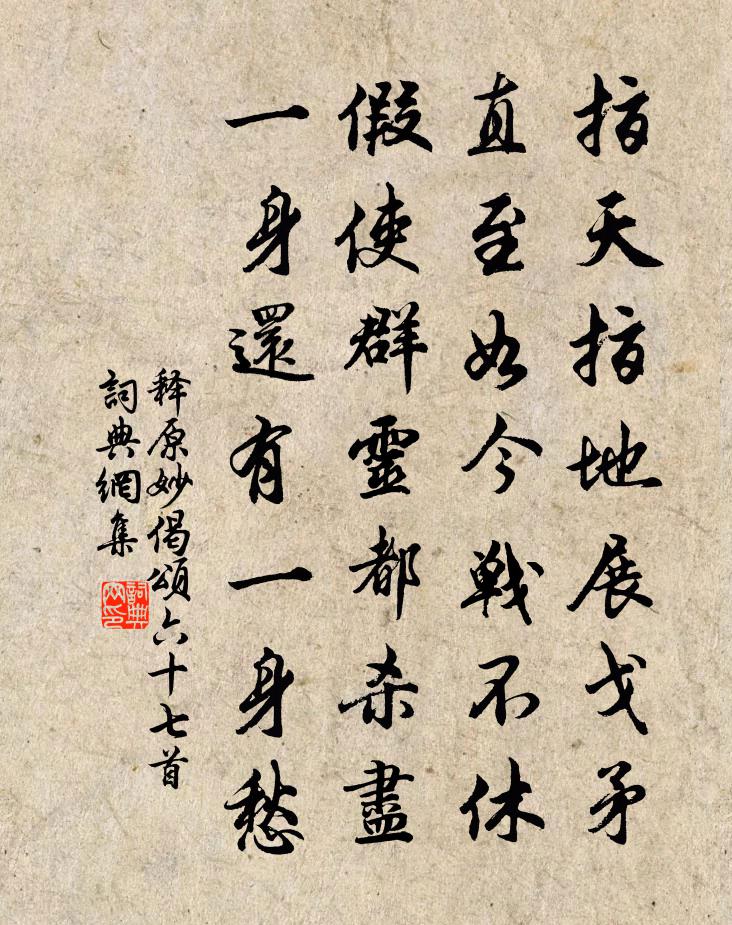 指天指地展戈矛
直至如今戦不休
假使群靈都杀盡
一身還有一身愁
释原妙偈頌六十七首
詞典網集
詞典
网印